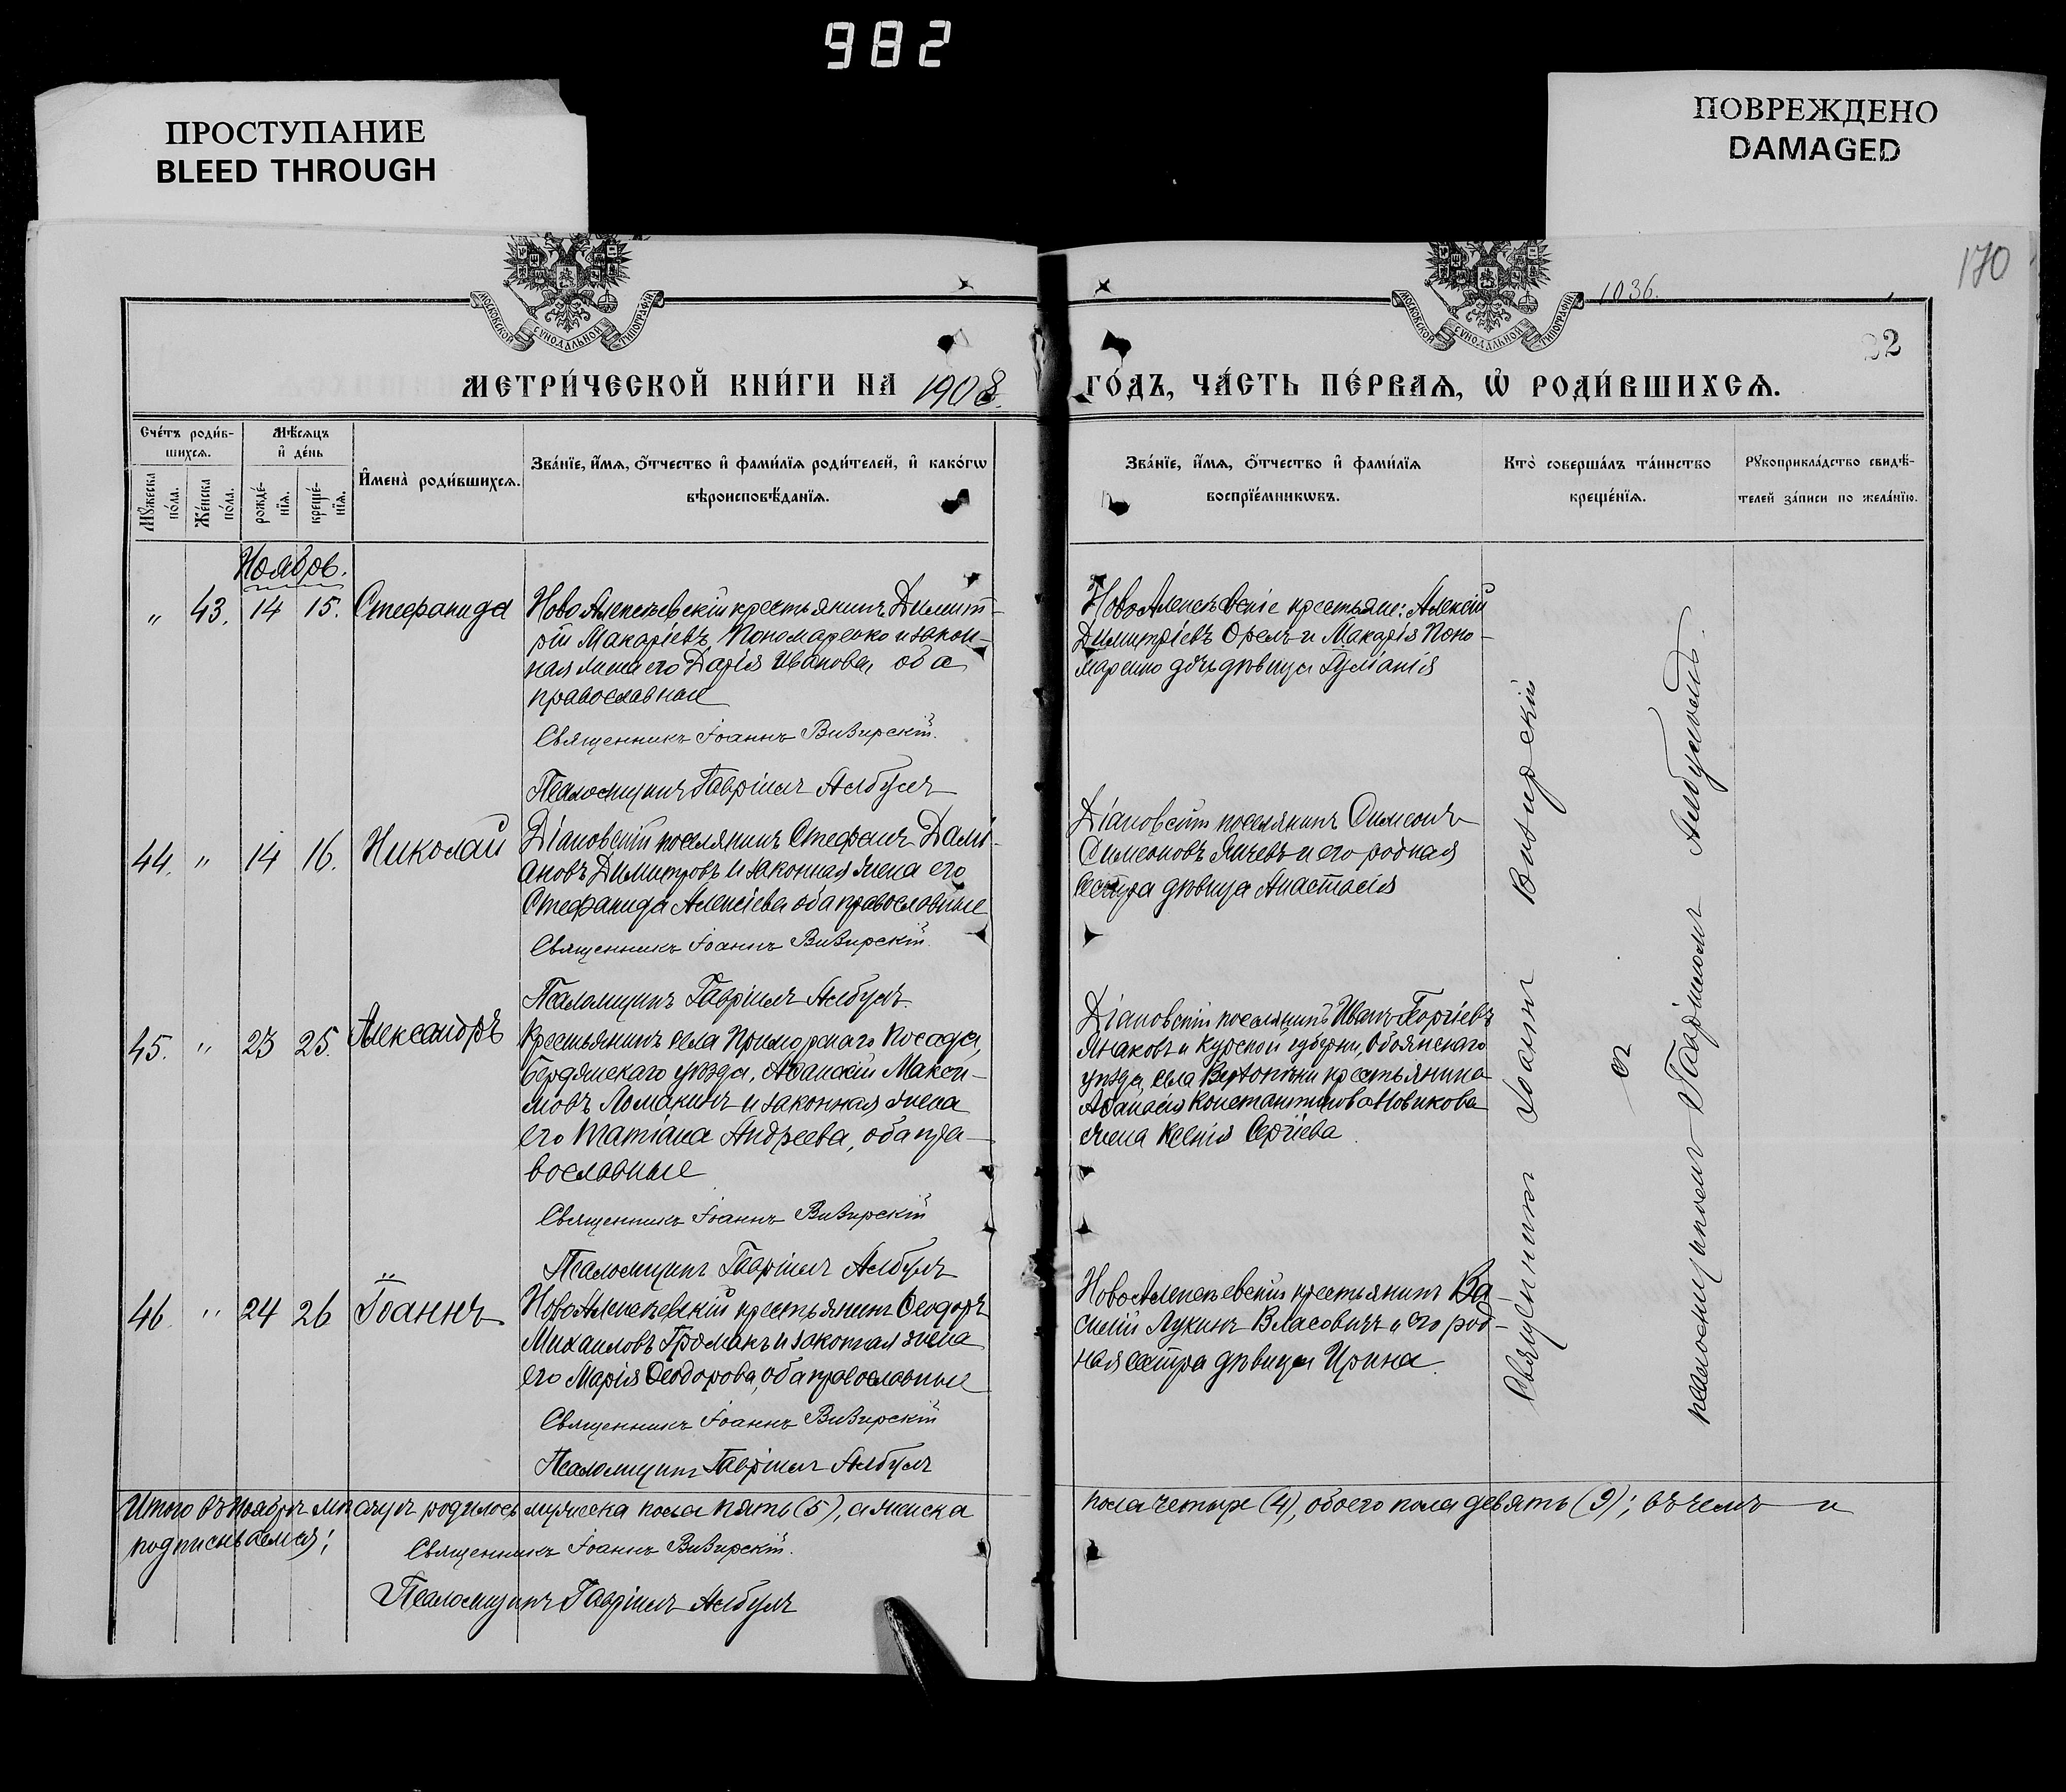 982
ПРОСТУПАНИЕ
BLEED THROUGH
ПОВРЕЖДЕНО
DAMAGED
170
1036.
22
МОСКОВСКОЙ СУНОДАЛЬНОЙ ТИПОГРАФІИ
МОСКОВСКОЙ СУНОДАЛЬНОЙ ТИПОГРАФІИ
МЕТРИ́ЧЕСКОЙ КНИ́ГИ НА 1908 ГО́ДЪ, ЧА́СТЬ ПЕ́РВАѦ, Ѡ҆ РОДИ́ВШИХСѦ.
Сче́тъ роди́в-
шихсѧ.
Мꙋ́жеска по́ла.
Же́нска по́ла.
Мѣ́сѧцъ
и҆ де́нь
рожде́-
нїѧ.
креще́-
нїѧ.
И҆мена̀ роди́вшихсѧ.
Зва́нїе, и҆́мѧ, ѻ҆́тчество и҆ фами́лїѧ роди́телей, и҆ како́гѡ
вѣроисповѣ́данїѧ.
Зва́нїе, и҆́мѧ, ѻ҆́тчество и҆ фами́лїѧ
воспрїе́мникѡвъ.
Кто̀ соверша́лъ та́инство
креще́нїѧ.
Рꙋкоприкла́дство свидѣ́-
телей за́писи по жела́нїю.
Ноябрь.
" 43. 14 15. Стефанида
Ново Алексѣевскій крестьянинъ Димит-
рій Макаріевъ Пономаренко и закон-
ная жена его Дарія Иванова, оба
православные
Священникъ Іоаннъ Визирскій.
Псаломщикъ Гавріилъ Албулъ
НовоАлексѣевскіе крестьяне: Алексій
Димитріевъ Орелъ и Макарія Поно-
маренко дочь дѣвица
44. " 14 16. Николай
Діановскій поселянинъ Стефанъ Дамі-
ановъ Димитровъ и законная жена его
Стефанида Алексіева оба православные
Священникъ Іоаннъ Визирскій.
Псаломщикъ Гавріилъ Албулъ.
Діановскій поселянинъ Симеонъ
Симеоновъ Янчевъ и его родная
сестра дѣвица Анастасія
45. " 23 25. Александръ
Крестьянинъ села Приморскаго Посада,
Бердянскаго уѣзда, Аѳанасій Макси-
мовъ Ломакинъ и законная жена
его Татіана Андреева, оба пра-
вославные
Священникъ Іоаннъ Визирскій
Псаломщикъ Гавріилъ Албулъ
Діановскій поселянинъ Иванъ Георгіевъ
и Курской губерніи, Обоянскаго
уѣзда, села крестьянина
Аѳанасія Константинова Новикова
жена Ксенія Сергіева
46. " 24 26 Іоаннъ
НовоАлексѣевскій крестьянинъ Ѳеодоръ
Михаиловъ Громакъ и законная жена
его Марія Ѳеодорова, оба православные
Священникъ Іоаннъ Визирскій
Псаломщикъ Гавріилъ Албулъ
НовоАлексѣевскій крестьянинъ Ва-
силій Лукинъ Власовичъ и его род-
ная сестра дѣвица Ирина.
Священникъ Іоаннъ Визирскій
съ
псаломщикомъ Гавріиломъ Албуломъ.
Итого въ Ноябрѣ мѣсяцѣ родилось мужеска пола пять (5), а женска пола четыре (4), обоего пола девять (9); въ чемъ и
подписываемся:
Священникъ Іоаннъ Визирскій.
Псаломщикъ Гавріилъ Албулъ